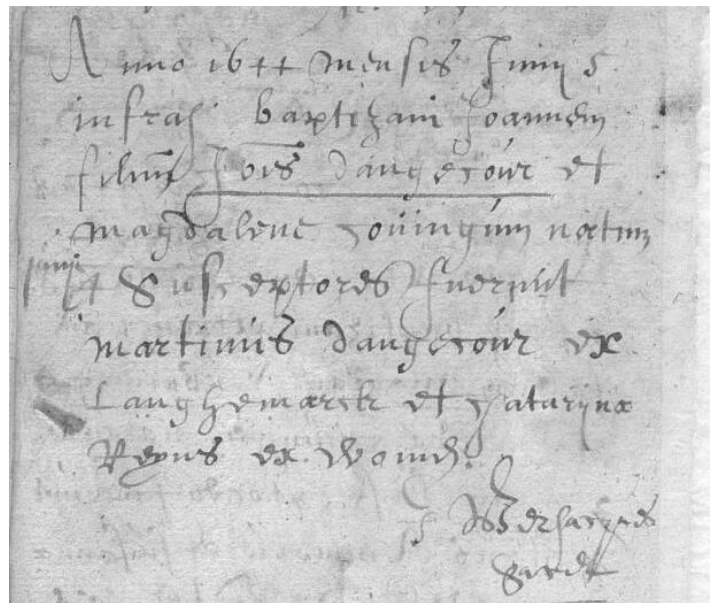 Anno 1644 mensis Junij 5
infras: baptizavi Joannem
filiu Jois dangecour et
magdalene coniugum natum
junij 4 Susceptores fuerunt
martinus dangecour ex
Langhemarck et Catarijna
Reyns ex